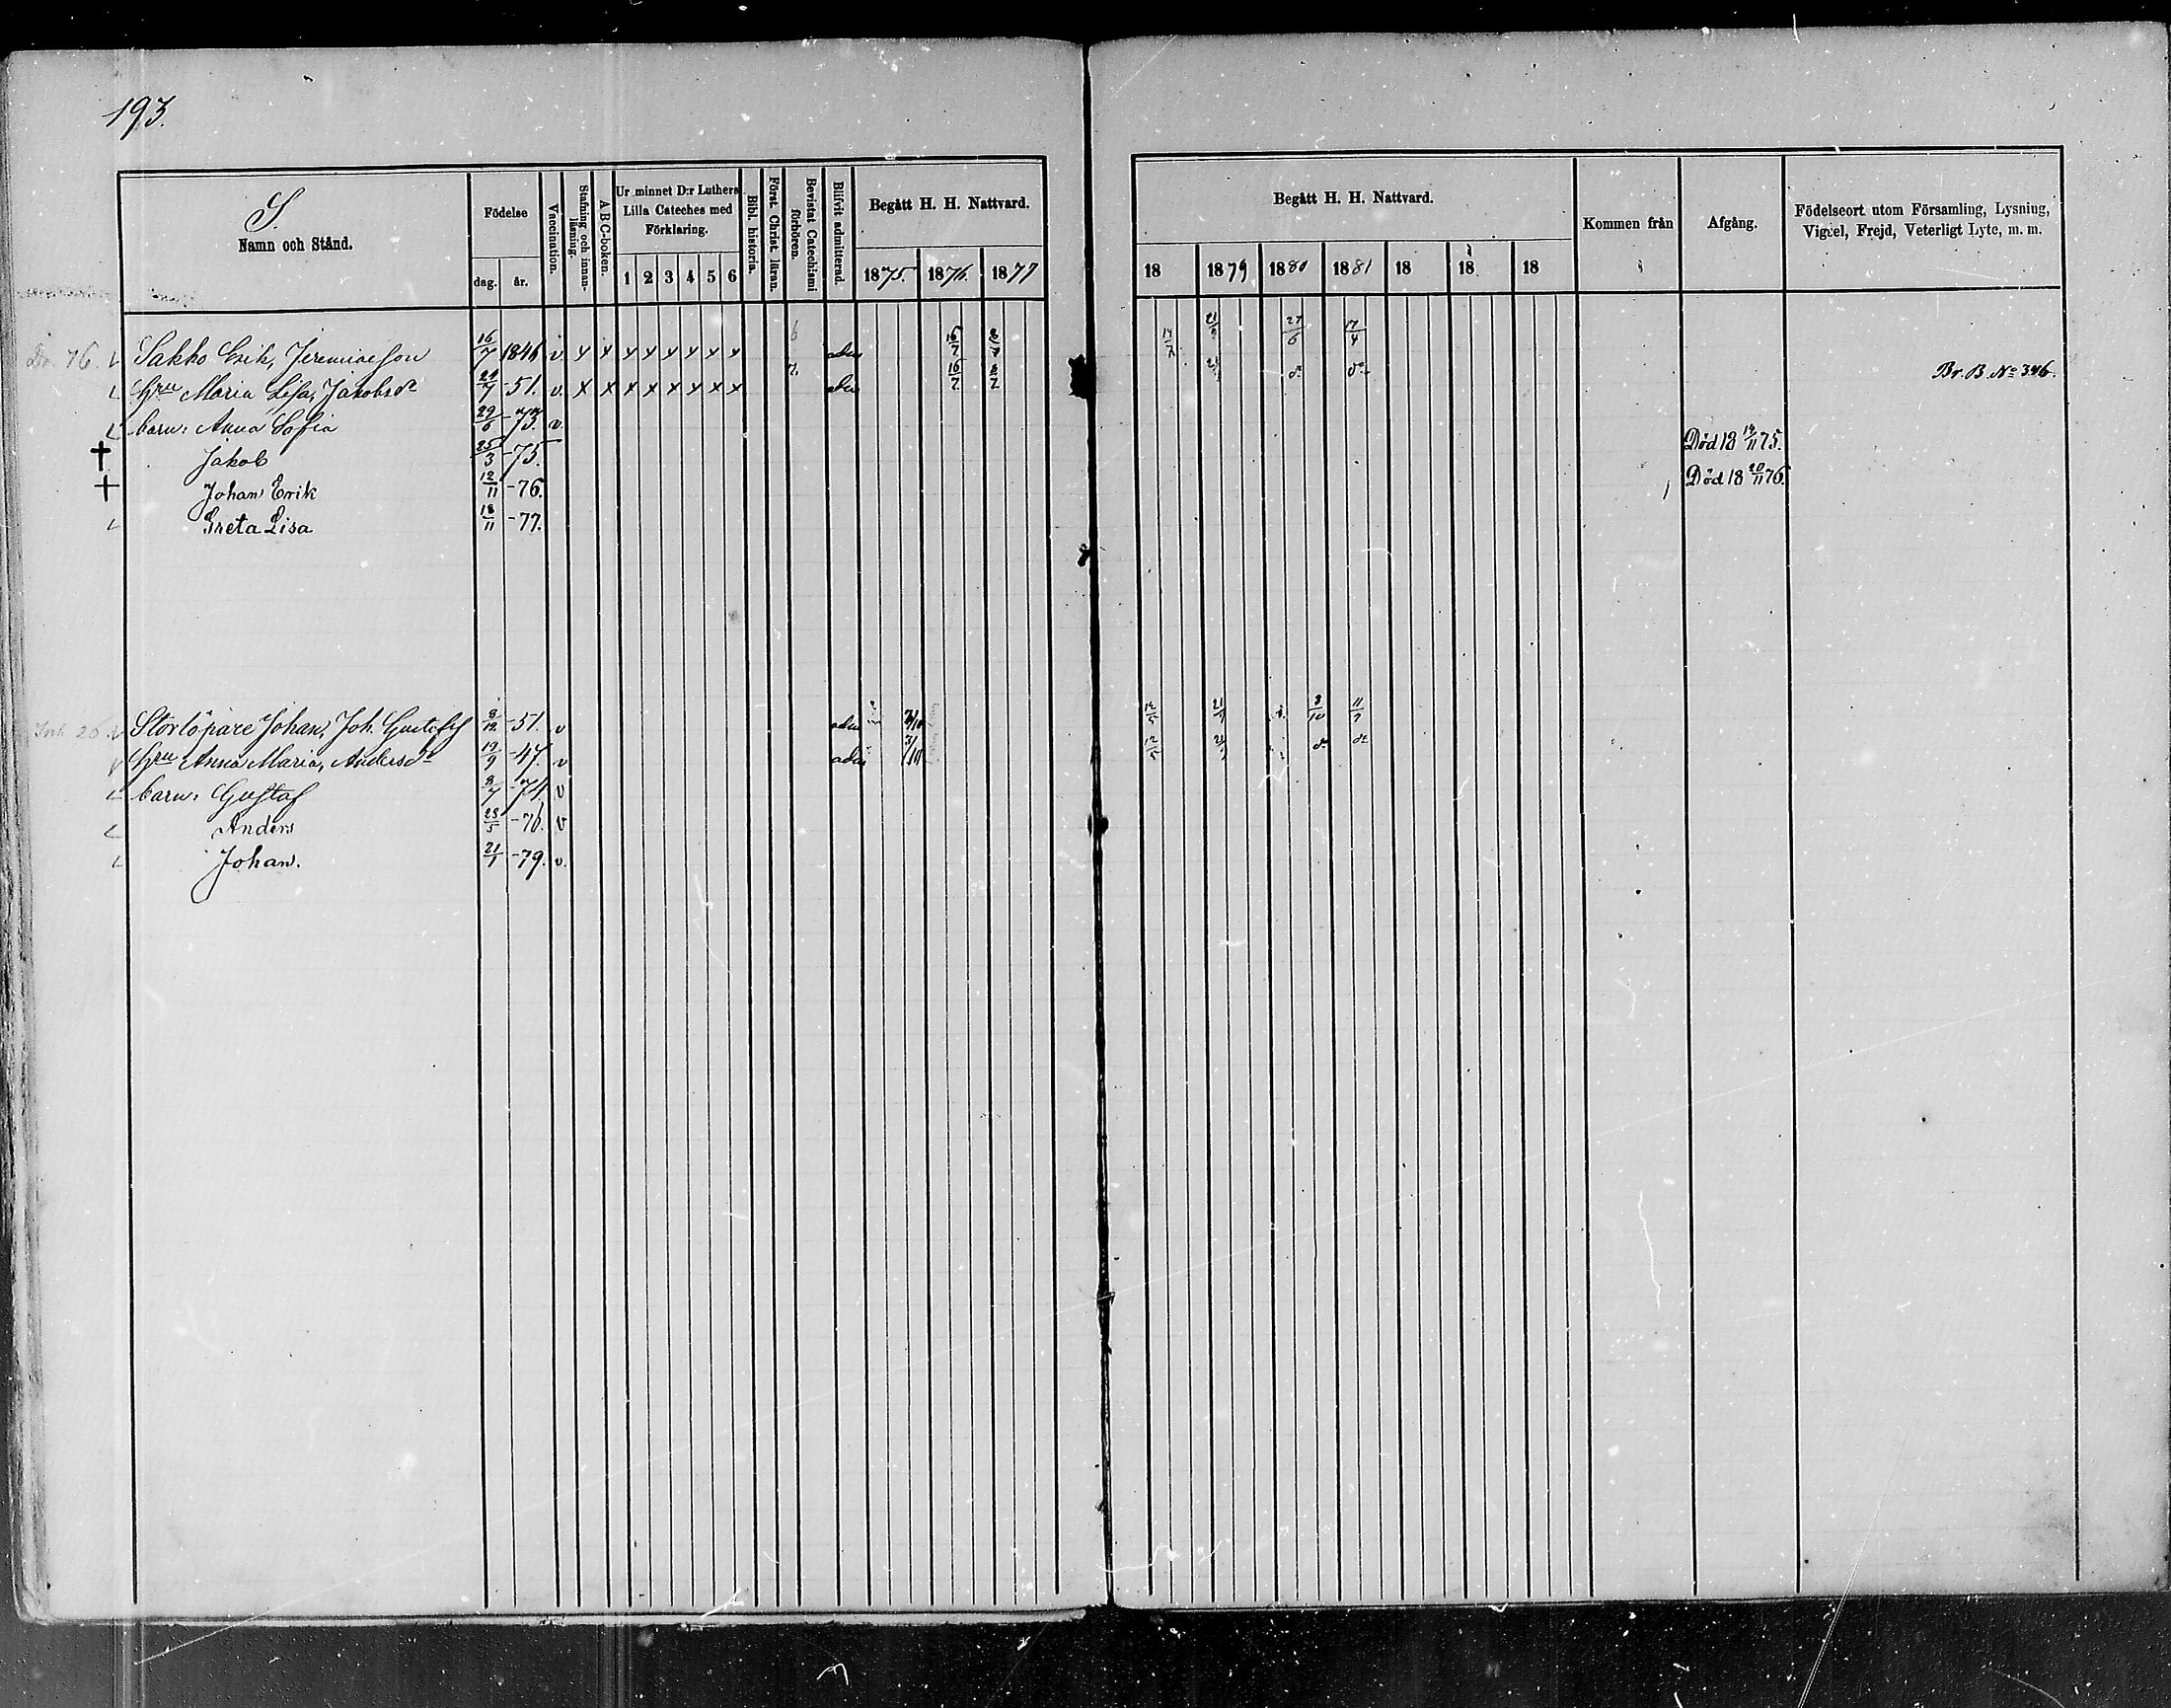 193.
S.
Namn och Stånd.
Födelse
dag. år.
Vaccination.
Stafning och innan-läsning.
A B C-boken.
Ur minnet D:r Luthers Lilla Cateches med Förklaring.
1 2 3 4 5 6
Bibl. historia.
Först. Christ. läran.
Bevistat Catechismi förhören.
Blifvit admitterad.
Begått H. H. Nattvard.
1875. 1876. 1877
Begått H. H. Nattvard.
18 1879 1880 1881 18 18 18
Kommen från
Afgång.
Födelseort utom Församling, Lysning, Vigsel, Frejd, Veterligt Lyte, m. m.
Sakko Erik, Jeremiaeson 16/7 1846 v. x x x x x x x x adm 16/7 14/7 27/6 17/4
Hru Maria Lisa, Jakobsdr 21/7 -51. v. x x x x x x x x adm 16/7 do do Br. B. No 346.
barn: Anna Sofia 29/6 -73. v.
† Jakob 25/3 -75. Död 18 14/11 75.
† Johan Erik 12/11 -76. Död 18 20/11 76.
Greta Lisa 18/11 -77.
Storlöpare Johan, Joh. Gustafss 8/12 -51. v adm 3/10 11/7
Hru Anna Maria, Andersdr 19/9 -47. v adm do do
barn: Gustaf 8/7 -74. v
Anders 28/5 -76. v
Johan. 21/1 -79. v.